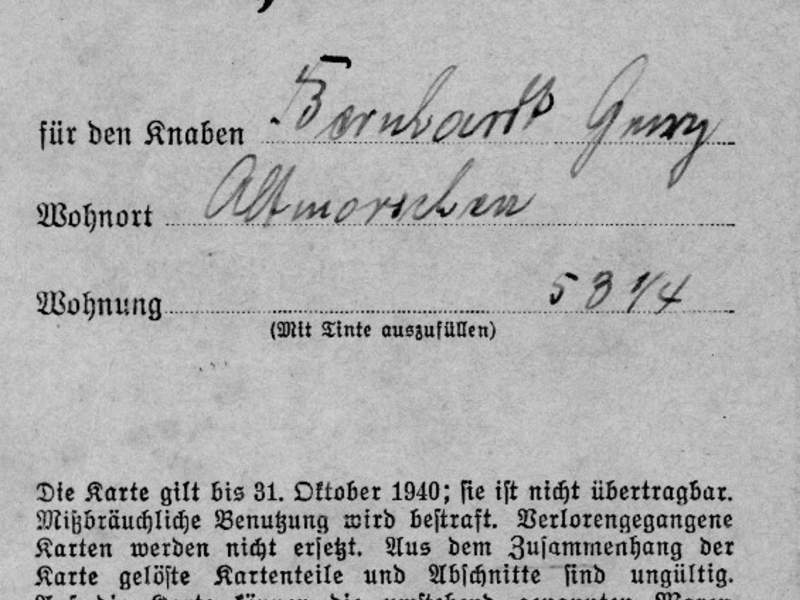 für den Knaben Bernhardt Georg
Wohnort Altmorschen
Wohnung 53 1/4
(Mit Tinte auszufüllen)
Die Karte gilt bis 31. Oktober 1940; sie ist nicht übertragbar.
Mißbräuchliche Benutzung wird bestraft. Verlorengegangene
Karten werden nicht ersetzt. Aus dem Zusammenhang der
Karte gelöste Kartenteile und Abschnitte sind ungültig.